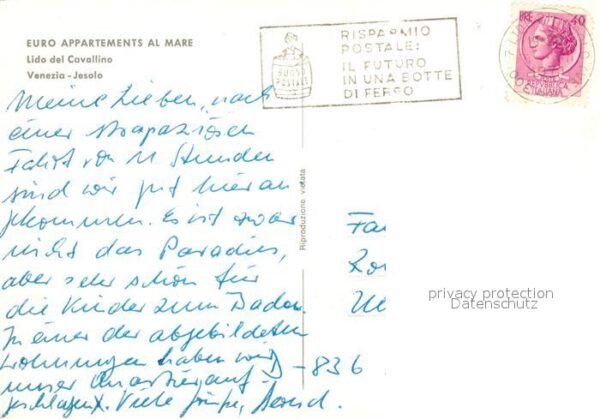 EURO APPARTEMENTS AL MARE
Lido del Cavallino
Venezia - Jesolo
RISPARMIO
POSTALE:
IL FUTURO
IN UNA BOTTE
DI FERRO
BUONO
POSTALE
LIRE 40
Meine Lieben, nach
einer strapaziösen
Fahrt von 11 Stunden
sind wir gut hier an
gekommen. Es ist zwar
nicht das Paradies,
aber sehr schön für
die Kinder zum Baden.
In einer der abgebildeten
Wohnungen haben wir
unser Quartier auf-
geschlagen. Viele Grüße,
Riproduzione vietata
D-836
privacy protection
Datenschutz